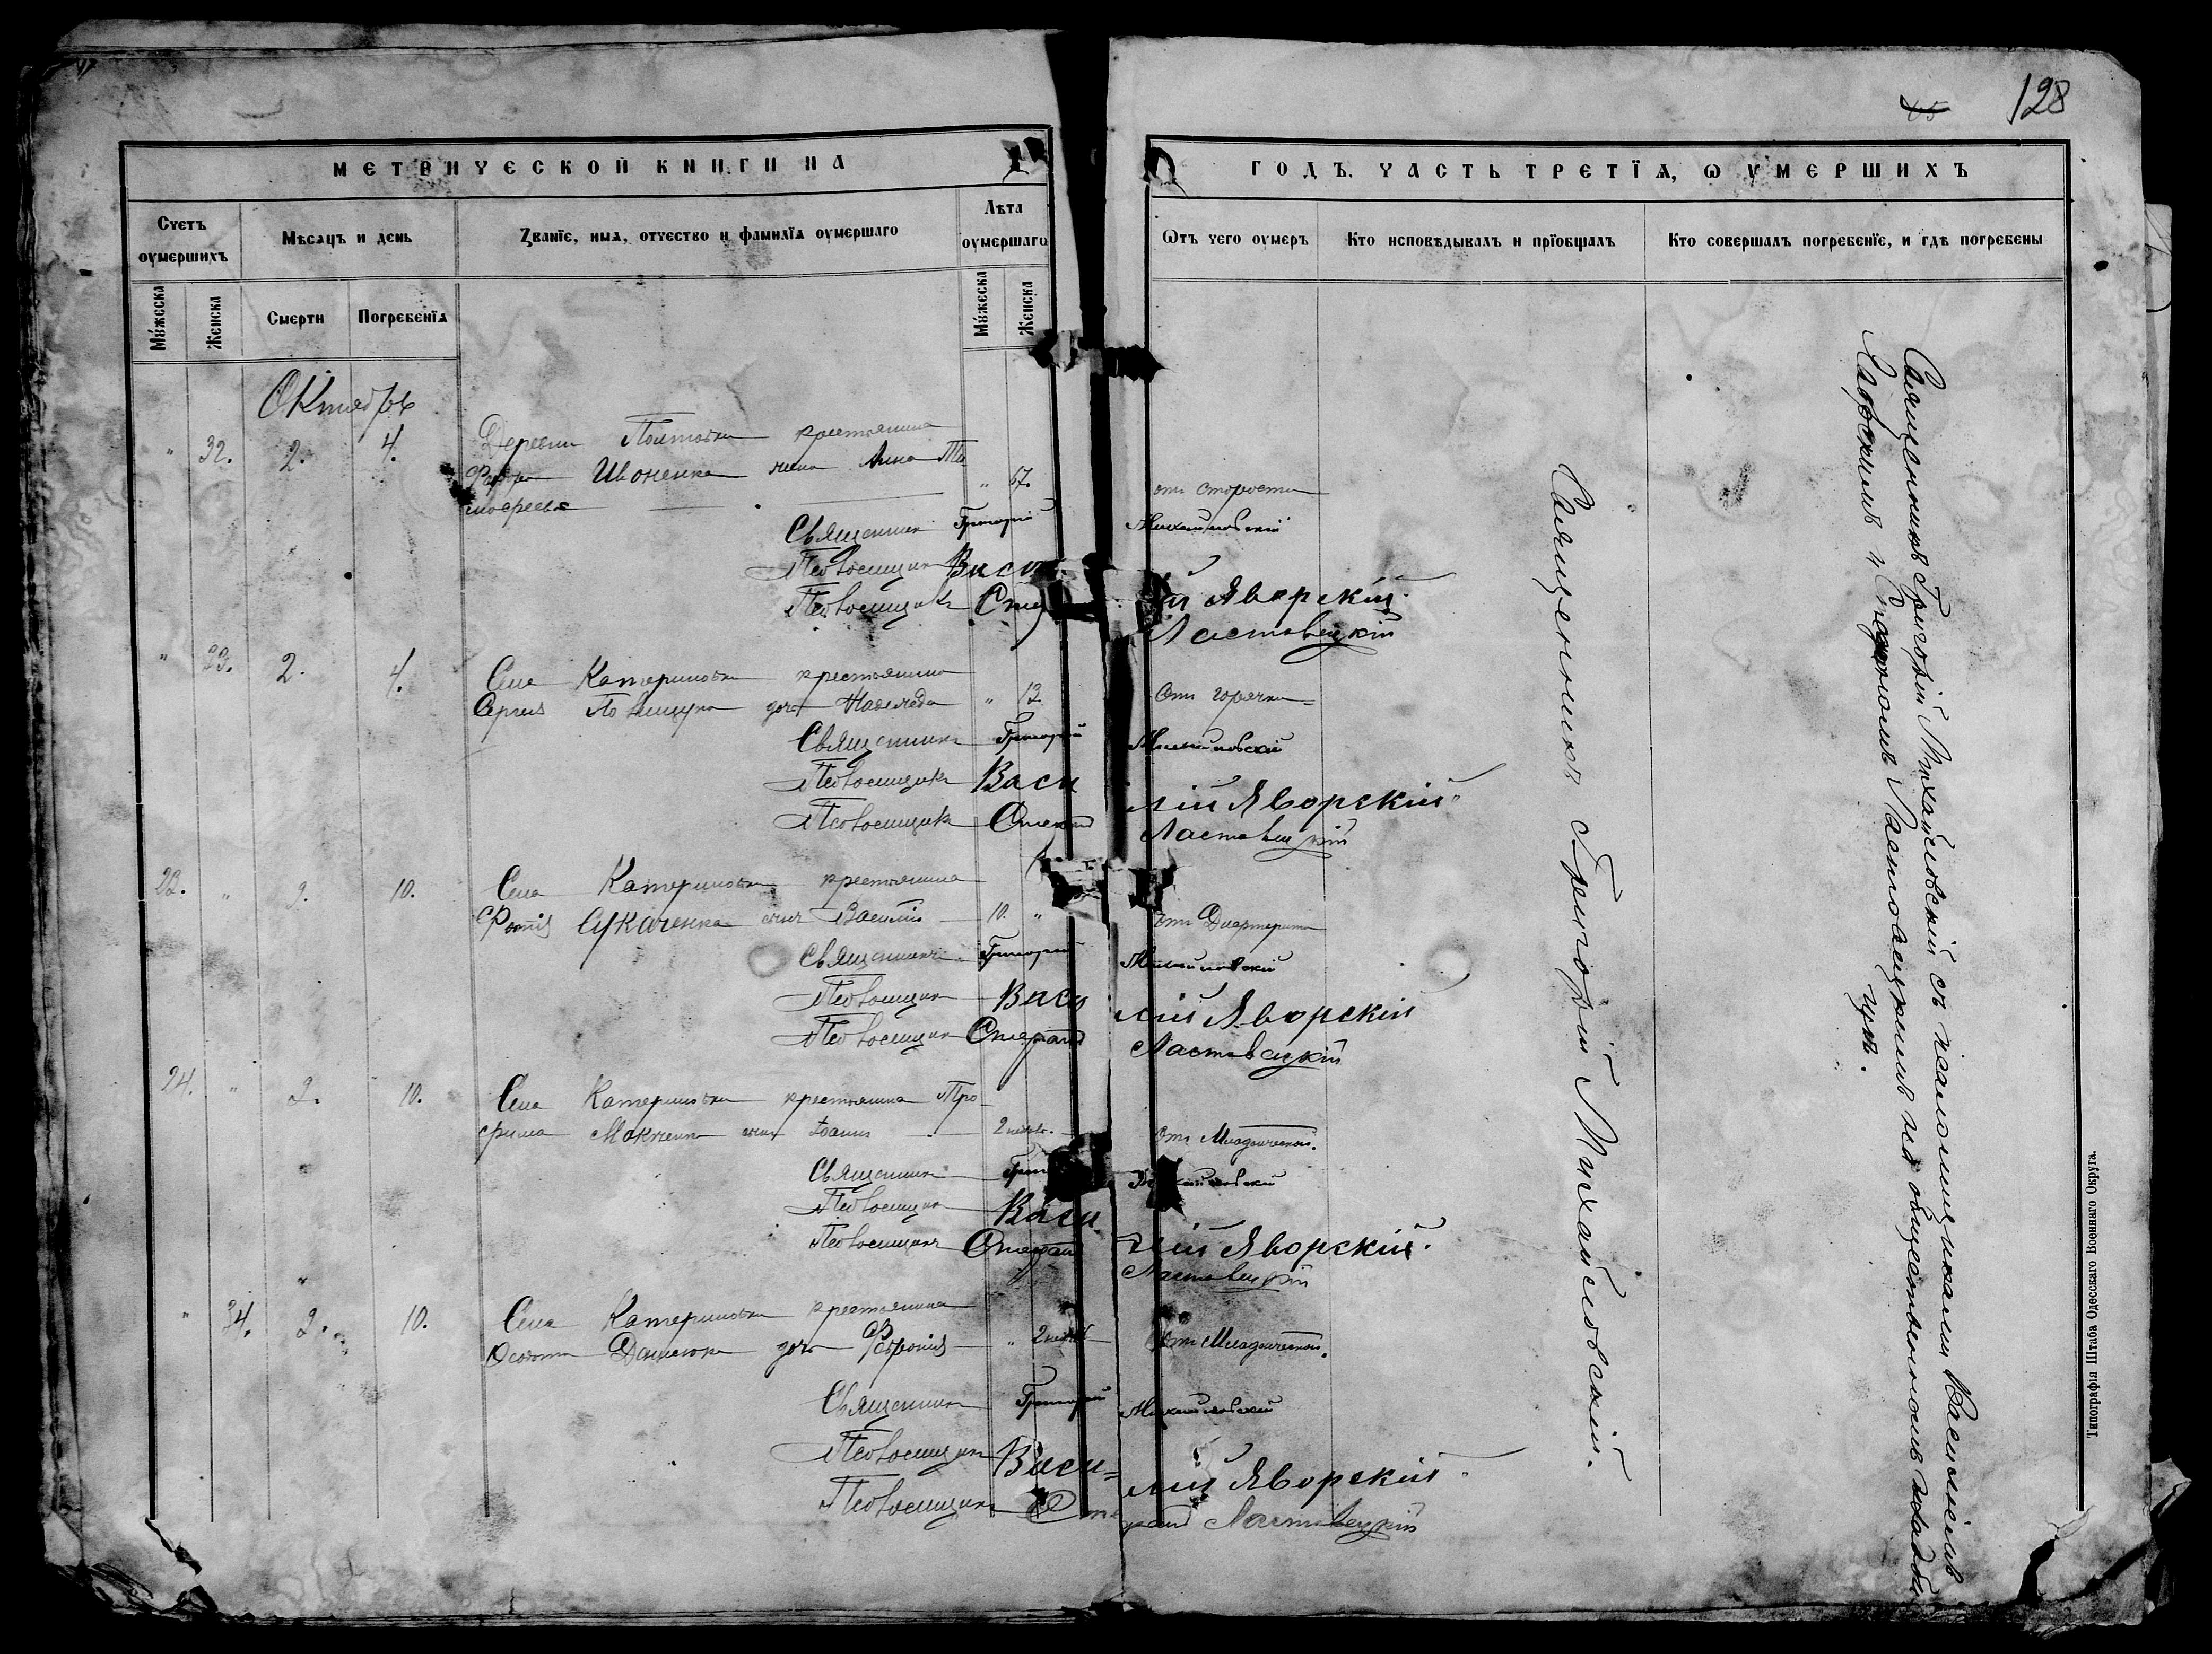 128
МЕТРИЧЕСКОЙ КНИГИ НА
ГОДЪ. ЧАСТЬ ТРЕТІѦ, Ѡ УМЕРШИХЪ
Счетъ оумершихъ
Мѣсяцъ и день
Званїе, имя, отчество и фамилїя оумершаго
Лѣта оумершаго
Ѿтъ чего оумеръ
Кто исповѣдывалъ и прїобщалъ
Кто совершалъ погребенїе, и гдѣ погребены
Мужеска
Женска
Смерти
Погребенїя
Мужеска
Женска
Октябрь
" 32. 2. 4. Деревни крестьянина
Ивоненка жена Анна Ти
мофеева " 67. отъ старости
Священникъ Григорій Михайловскій
Псаломщикъ Василій Яворскій
Псаломщикъ Ластовецкій
" 33. 2. 4. Села Катериновки крестьянина
Сергія дочь Надежда " 13 Отъ горячки
Священникъ Григорій Михайловскій
Псаломщикъ Василій Яворскій
Псаломщикъ Стефанъ Ластовецкій
23. " 2. 10. Села Катериновки крестьянина
сынъ Василій 10. " отъ Дифтерита
Священникъ Григорій Михайловскій
Псаломщикъ Василій Яворскій
Псаломщикъ Стефанъ Ластовецкій
24. " 2. 10. Села Катериновки крестьянина Тро
фима сынъ Іоаннъ 2 Отъ Младенческой.
Священникъ Григорій Михайловскій
Псаломщикъ Василій Яворскій.
Псаломщикъ Стефанъ Ластовецкій
" 34. 2. 10. Села Катериновки крестьянина
Данилюка дочь Февронія " 2 Отъ Младенческой.
Священникъ Григорій Михайловскій
Псаломщикъ Василій Яворскій
Псаломщикъ Стефанъ Ластовецкій
Священникъ Григорій Михайловскій.
Священникъ Григорій Михайловскій съ псаломщиками Василіемъ
Яворскимъ и Стефаномъ Ластовецкимъ на общественномъ кладби
щѣ.
Типографія Штаба Одесскаго Военнаго Округа.